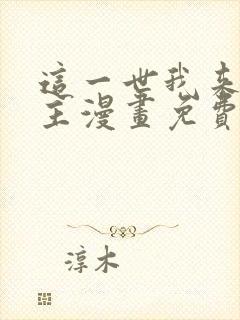 這一世我來
主漫畫免費
淳木